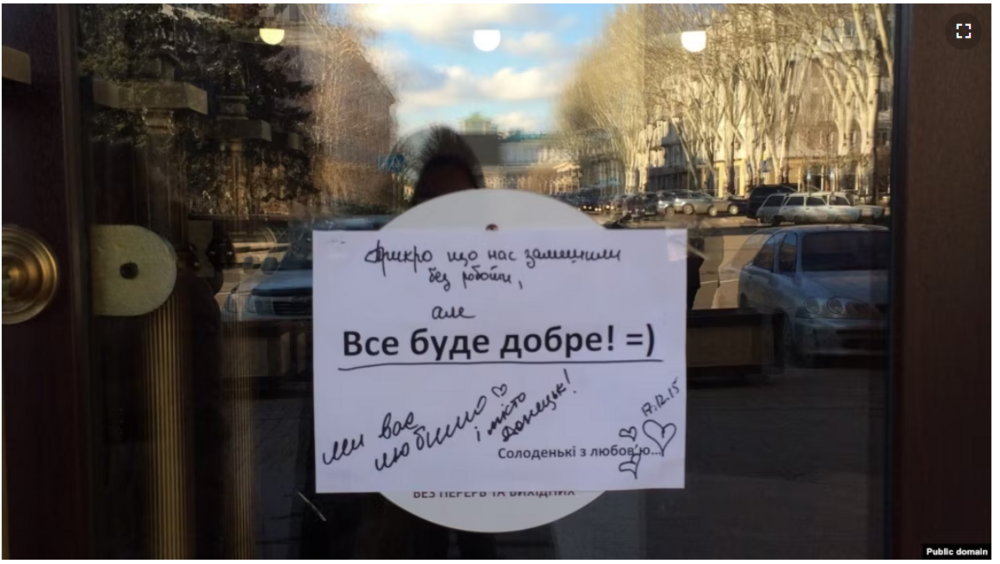 Прикро що нас залишили
без роботи,
але
Все буде добре! =)
ми вас
любимо
і місто
Донецьк!
17.12.15
Солоденькі з любов'ю...
БЕЗ ПЕРЕРВ ТА ВИХІДНИХ
Public domain